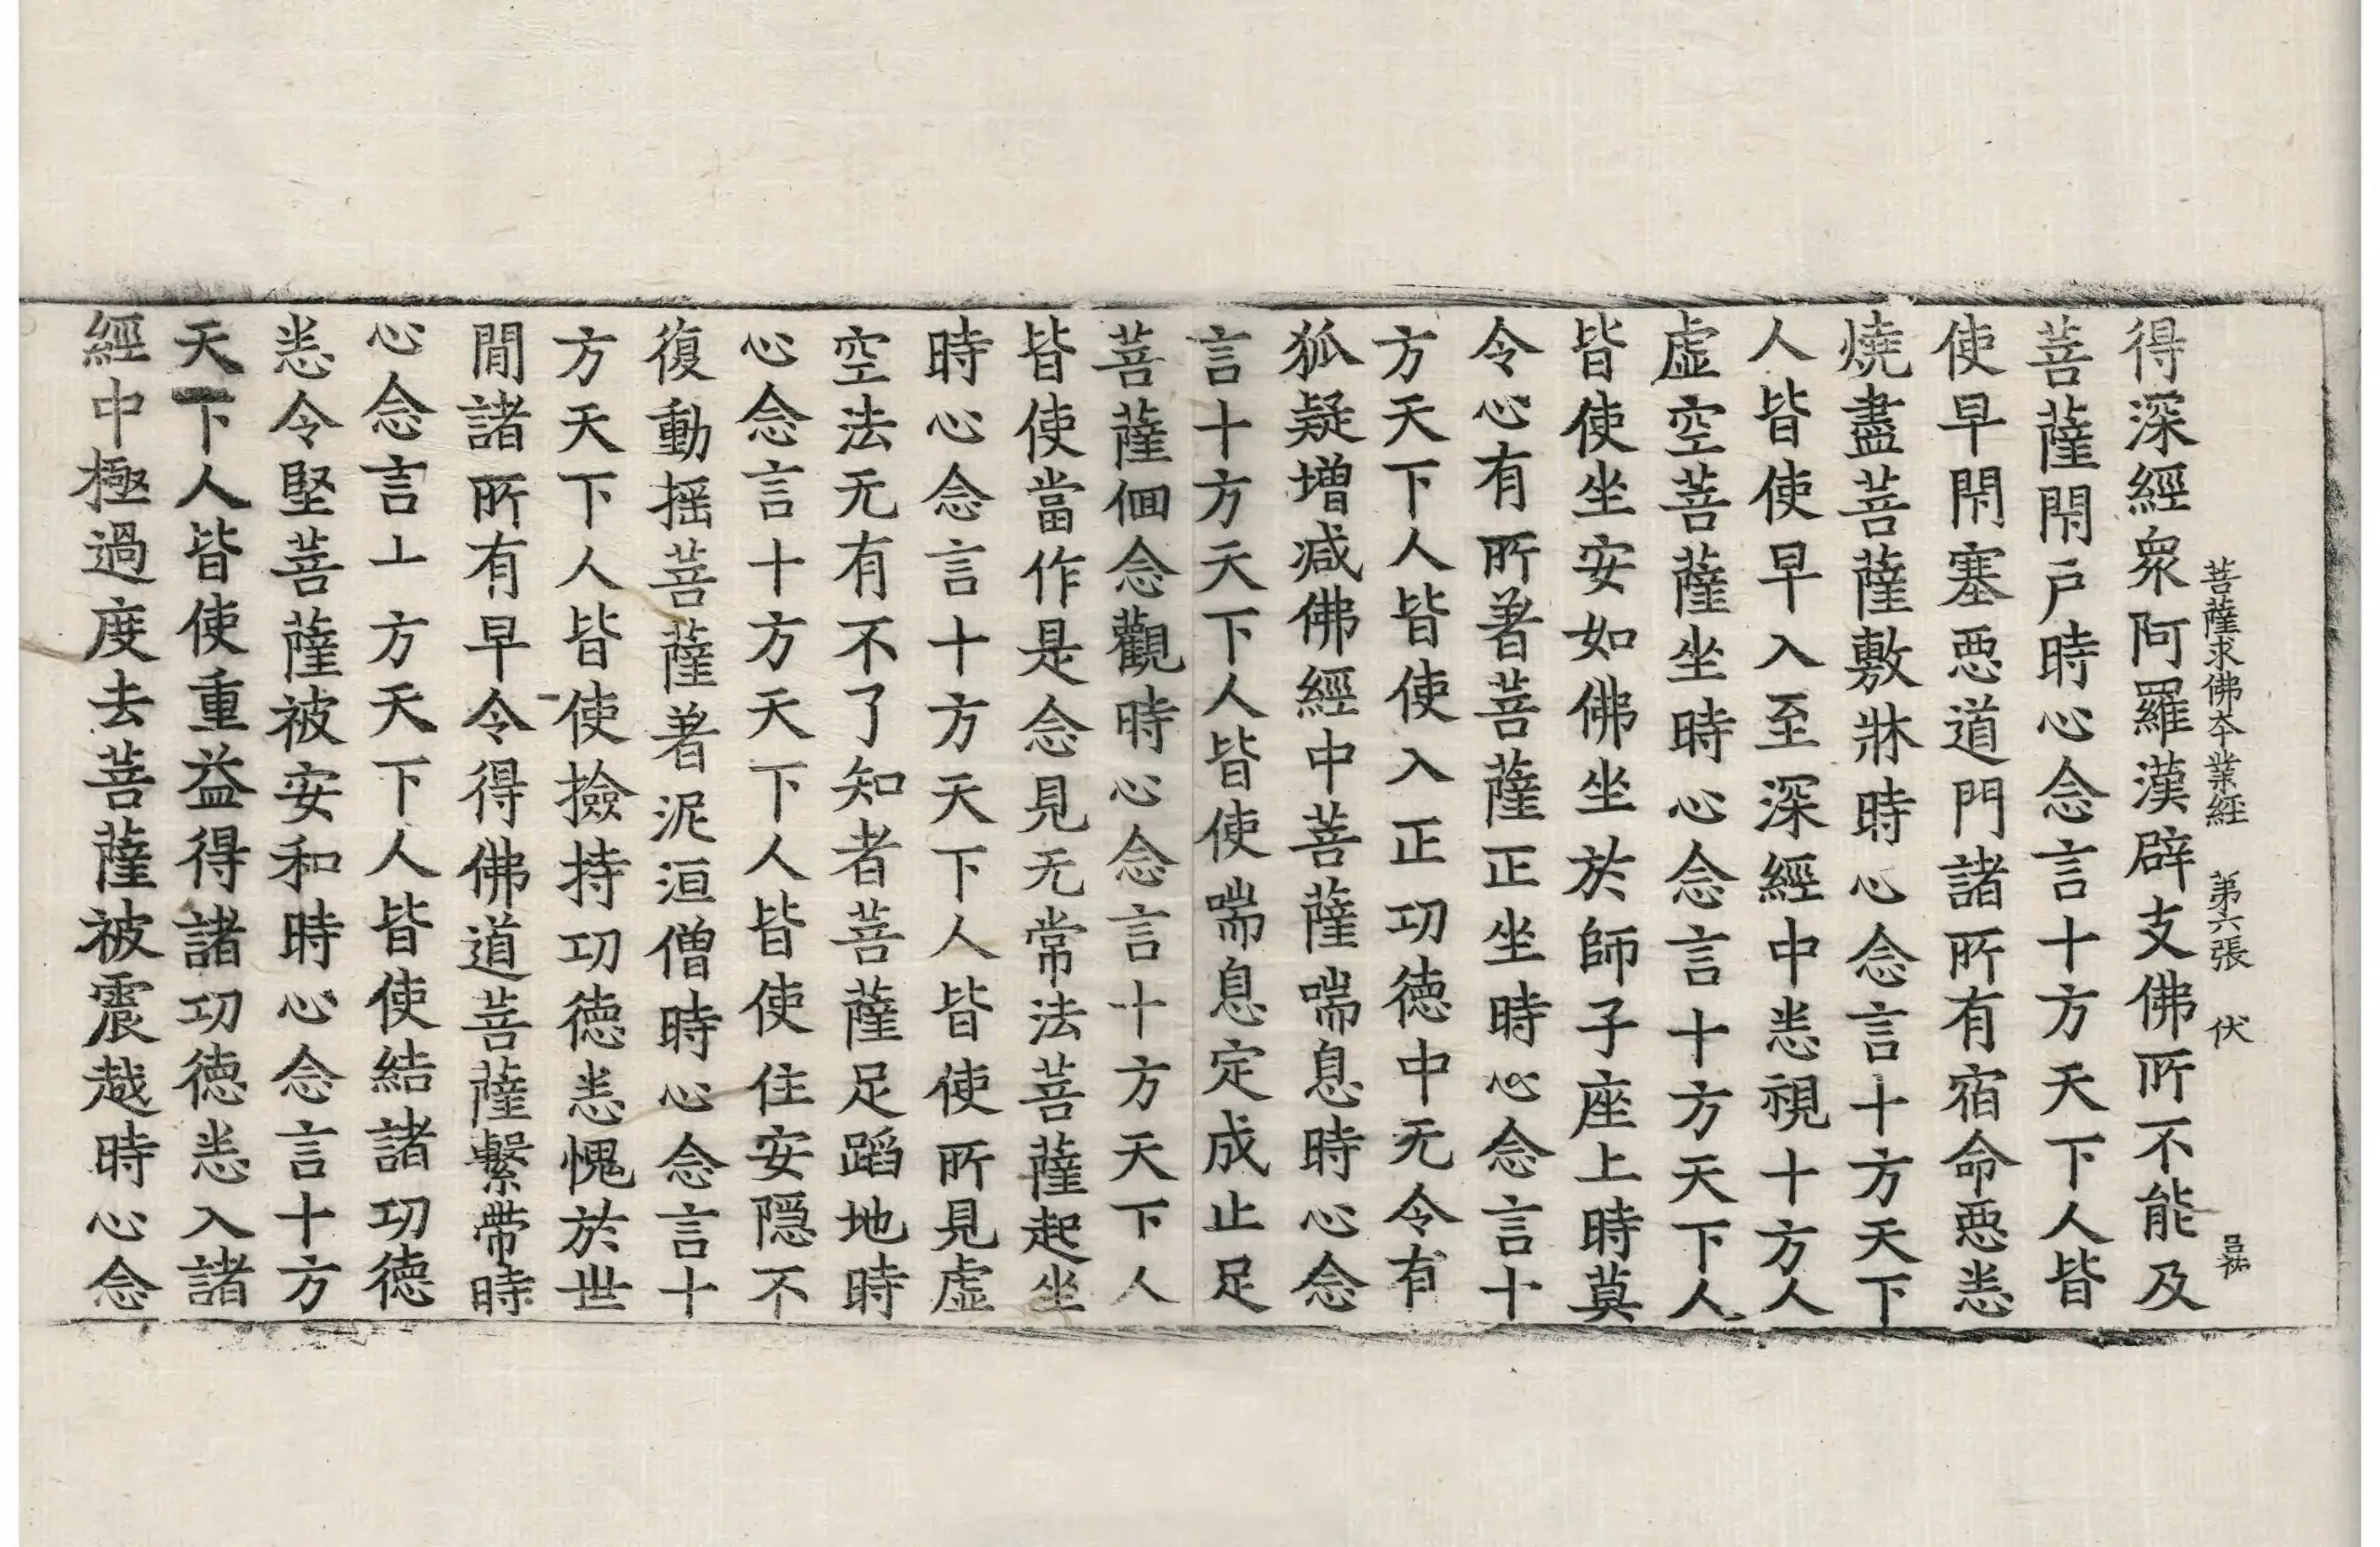 菩薩求佛本業經　第六張　伏　呂祐
得深經衆阿羅漢辟支佛所不能及
菩薩閇戶時心念言十方天下人皆
使早閇塞惡道門諸所有宿命惡悉
燒盡菩薩敷牀時心念言十方天下
人皆使早入至深經中悉視十方人
虛空菩薩坐時心念言十方天下人
皆使坐安如佛坐於師子座上時莫
令心有所著菩薩正坐時心念言十
方天下人皆使入正功德中无令有
狐疑增減佛經中菩薩喘息時心念
言十方天下人皆使喘息定成止足
菩薩佪念觀時心念言十方天下人
皆使當作是念見无常法菩薩起坐
時心念言十方天下人皆使所見虛
空法无有不了知者菩薩足蹈地時
心念言十方天下人皆使住安隱不
復動搖菩薩著泥洹僧時心念言十
方天下人皆使撿持功德悉愧於世
間諸所有早令得佛道菩薩繫帶時
心念言十方天下人皆使結諸功德
悉令堅菩薩被安和時心念言十方
天下人皆使重益得諸功德悉入諸
經中極過度去菩薩被震越時心念